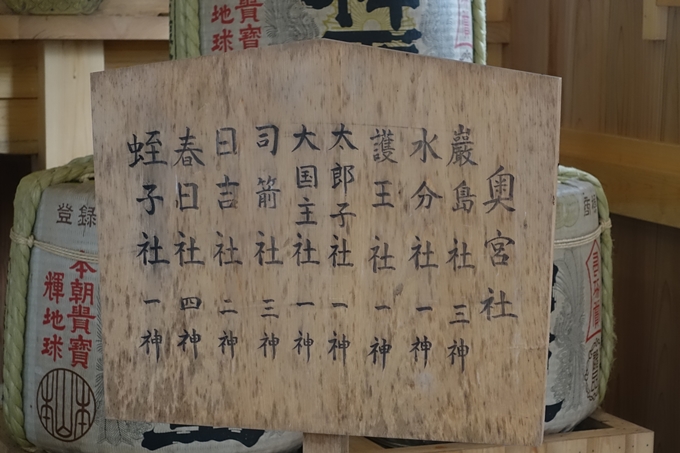 奥宮社
巖島社三神
水分社一神
護王社一神
太郎子社一神
大国主社一神
司箭社三神
日吉社二神
春日社四神
蛭子社一神
貴寶
地球
登録
本朝貴寶
輝地球